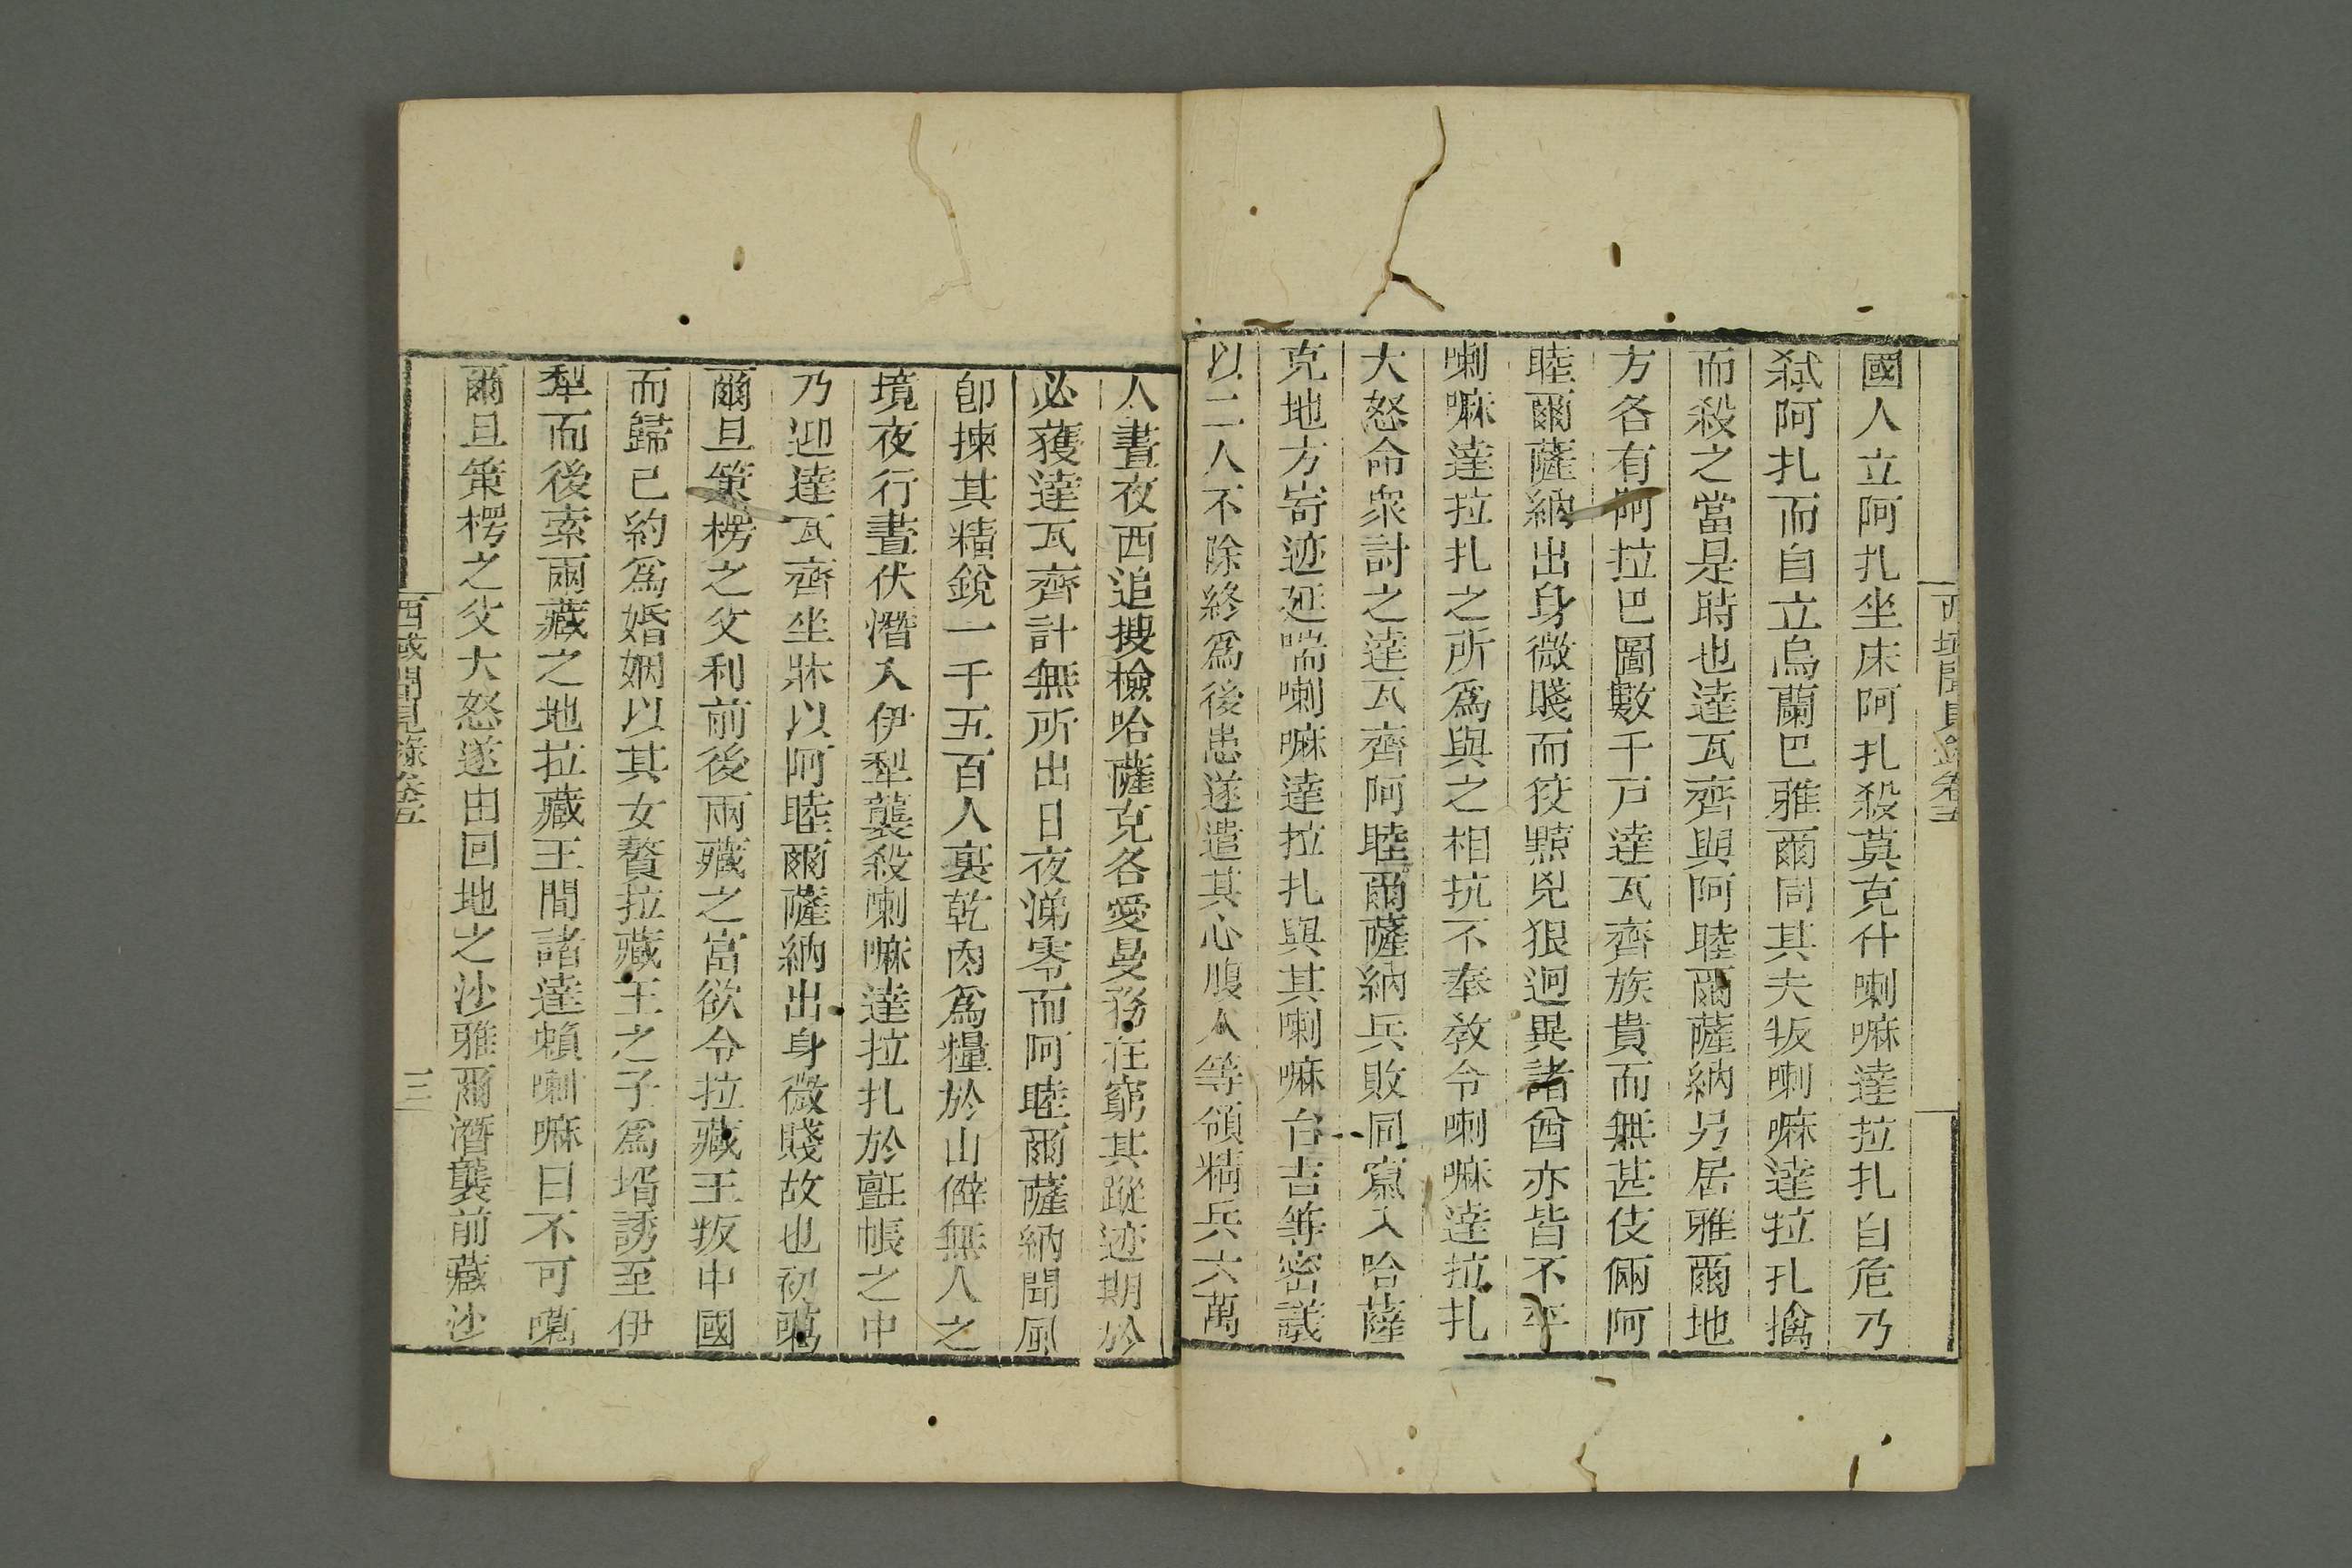 西域聞見錄卷五
國人立阿扎坐床阿扎殺莫克什喇嘛達拉扎自危乃
弒阿扎而自立烏蘭巴雅爾同其夫叛喇嘛達拉扎擒
而殺之當是時也達瓦齊與阿睦爾薩納另居雅爾地
方各有阿拉巴圖數千戸達瓦齊族貴而無甚伎倆阿
睦爾薩納出身微賤而狡黠兇狠迥異諸酋亦皆不平
喇嘛達拉扎之所爲與之相抗不奉敎令喇嘛達拉扎
大怒命衆討之達瓦齊阿睦爾薩納兵敗同竄入哈薩
克地方寄迹延喘喇嘛達拉扎與其喇嘛台吉等密議
以二人不除終爲後患遂遣其心腹人等領精兵六萬
人晝夜西追搜檢哈薩克各愛曼務在窮其蹤迹期於
必獲達瓦齊計無所出日夜涕零而阿睦爾薩納聞風
卽揀其精銳一千五百人裹乾肉爲糧於山僻無人之
境夜行晝伏潛入伊犁襲殺喇嘛達拉扎於氊帳之中
乃迎達瓦齊坐牀以阿睦爾薩納出身微賤故也初噶
爾旦策楞之父利前後兩藏之富欲令拉藏王叛中國
而歸已約爲婚姻以其女贅拉藏王之子爲壻誘至伊
犁而後索兩藏之地拉藏王間諸達賴喇嘛曰不可噶
爾旦策楞之父大怒遂由回地之沙雅爾潛襲前藏沙
西域聞見錄卷五 三